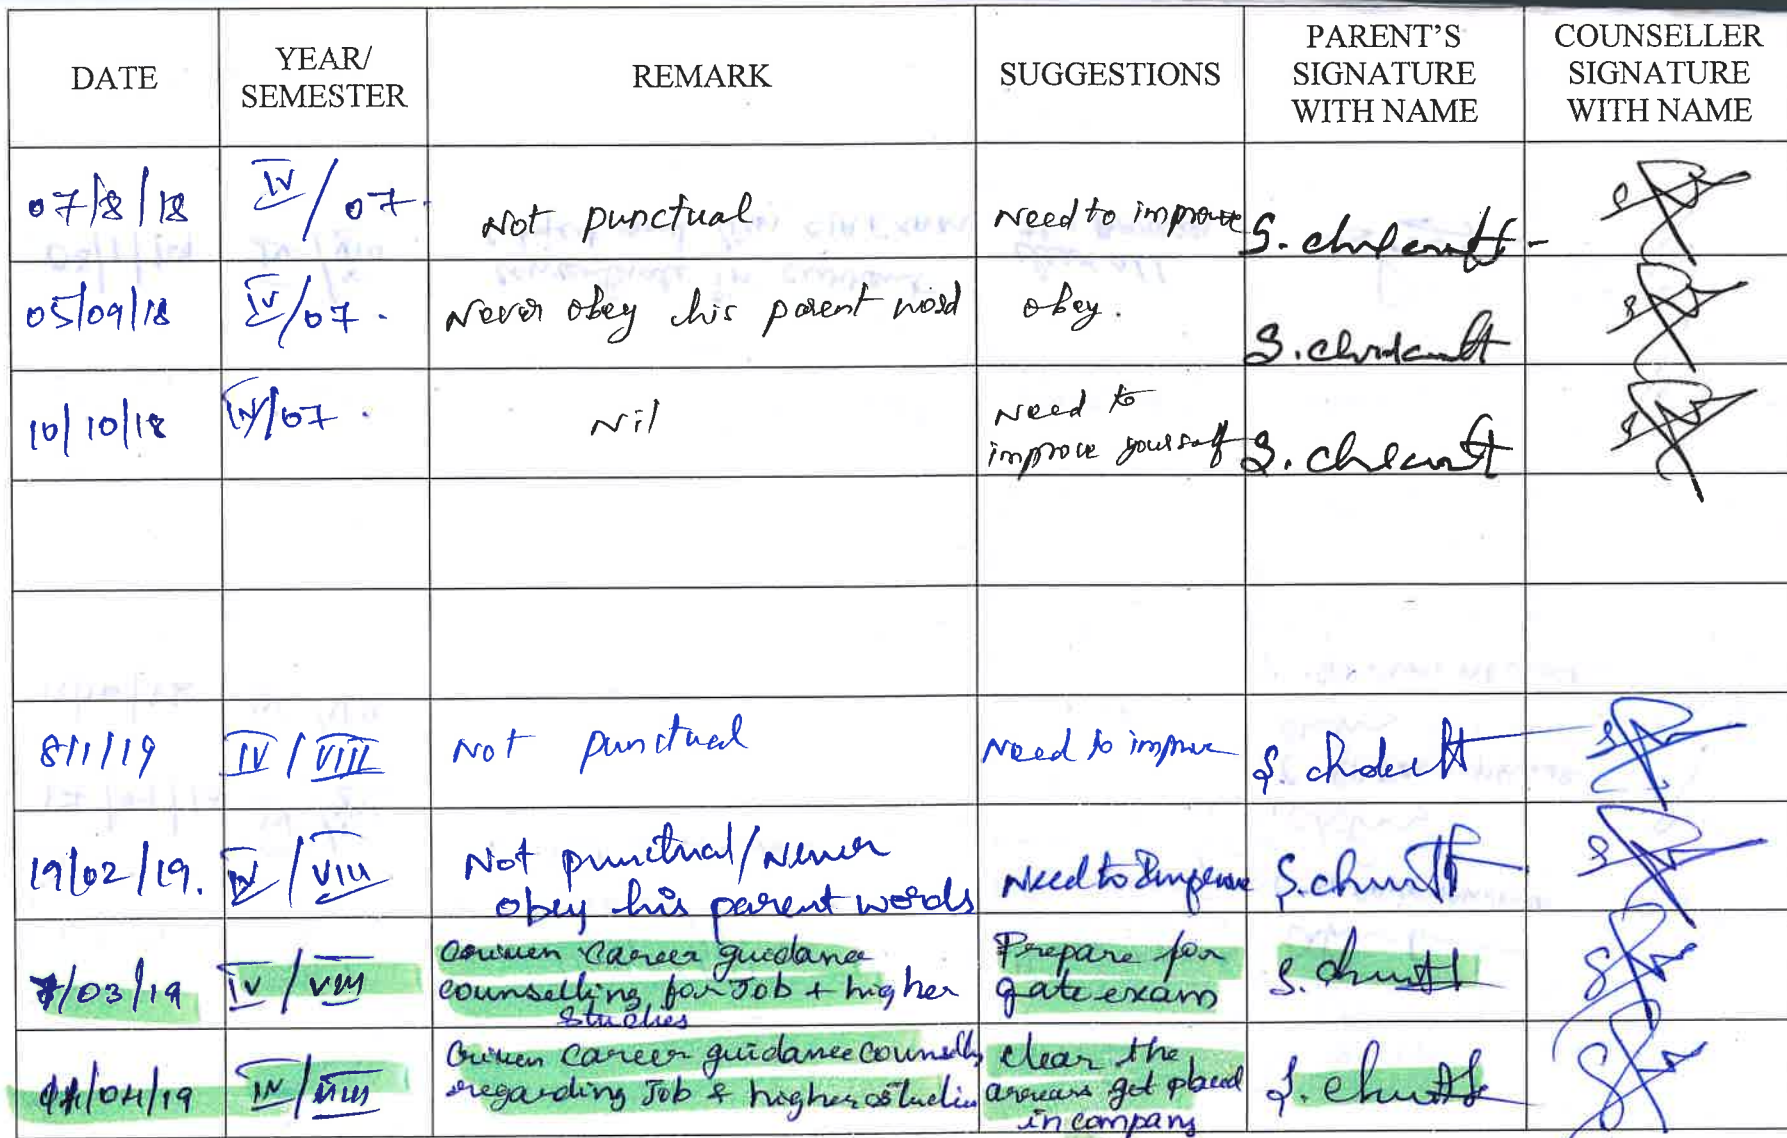 DATE
YEAR/
SEMESTER
REMARK
SUGGESTIONS
PARENT'S
SIGNATURE
WITH NAME
COUNSELLER
SIGNATURE
WITH NAME
07/8/18
IV/07.
Not punctual
Need to improve
05/09/18
IV/07.
Never obey his parent word
obey.
10/10/18
IV/07.
Nil
Need to
improve yourself
8/1/19
IV/VIII
Not punctual
Need to improve
19/02/19.
IV/VIII
Not punctual/Never
obey his parent words
Need to Improve
7/03/19
IV/VIII
Given career guidance
counselling for Job + higher
studies
Prepare for
gate exam
/04/19
IV/VIII
Given career guidance counselling
regarding Job & higher studies
clear the
arrears get placed
in company